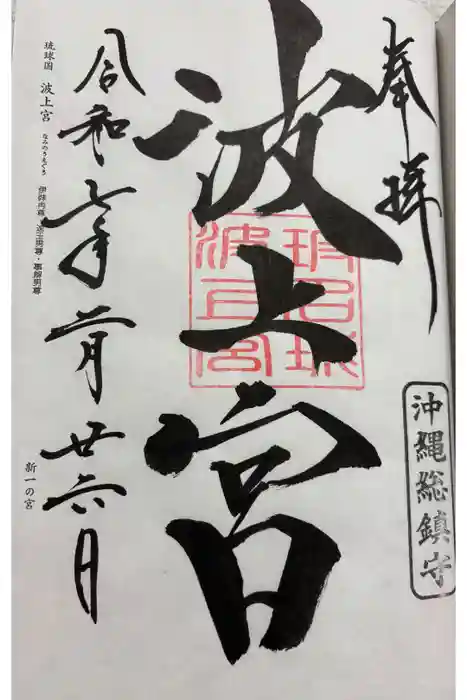 奉拝
沖縄総鎮守
波上宮
波上宮
令和七年二月廿六日
琉球国 波上宮 なみのうえぐう 伊弉冉尊・速玉男尊・事解男尊
新一の宮